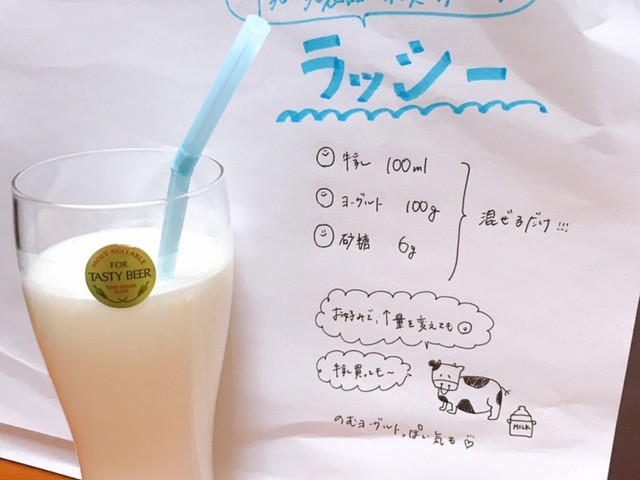 ラッシー
牛乳 100ml
ヨーグルト 100g
砂糖 6g
混ぜるだけ!!!
お好みで、↑量を変えても
牛乳買っても〜
MILK
のむヨーグルトっぽい気も♡
MOST SUITABLE
FOR
TASTY BEER
TOYO-SASAKI
GLASS